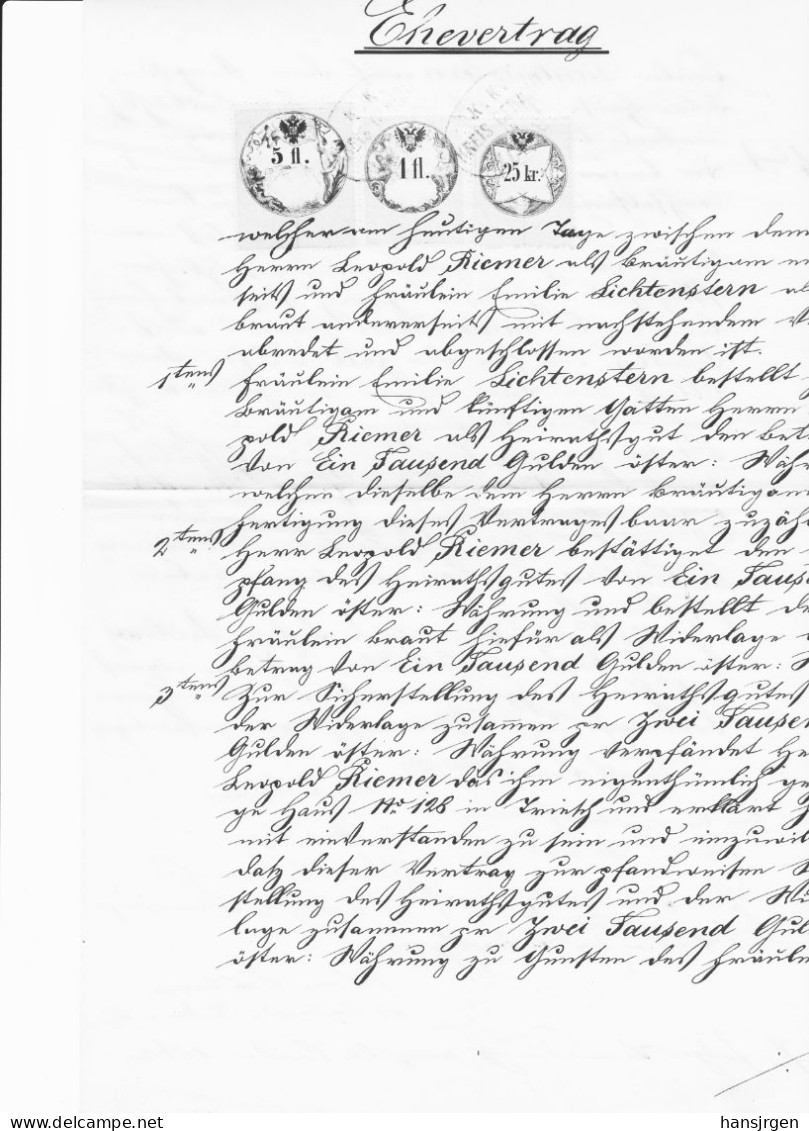 Ehevertrag
K. K.
5 fl.
1 fl.
25 kr.
welcher am heutigen Tage zwischen dem
Herrn Leopold Riemer als Bräutigam
seits und Fräulein Emilie Lichtenstern al
Braut andererseits mit nachstehendem V
abredet und abgeschlossen worden ist.
1tens Fräulein Emilie Lichtenstern bestellt
Bräutigam und künftigen Gatten Herrn
pold Riemer als Heirathsgut den Bet
von Ein Tausend Gulden öster: Wäh
welchen dieselbe dem Herrn Bräutigam
fertigung dieses Vertrages baar zuzäh
2tens Herr Leopold Riemer bestättiget den
pfang des Heirathsgutes von Ein Taus
Gulden öster: Währung und bestellt de
Fräulein Braut hiefür als Widerlage
betrag von Ein Tausend Gulden öster: W
3tens Zur Sicherstellung des Heirathsgutes
der Widerlage zusammen pr Zwei Tausen
Gulden öster: Währung verpfändet He
Leopold Riemer das ihm eigenthümlich ge
ge Haus No 128 in Triesch und erklärt
mit einverstanden zu sein und einzuwil
daß dieser Vertrag zur pfandweisen
stellung des Heirathsgutes und der Wi
lage zusammen pr Zwei Tausend Gul
öster: Währung zu Gunsten des Fräule
hansjrgen